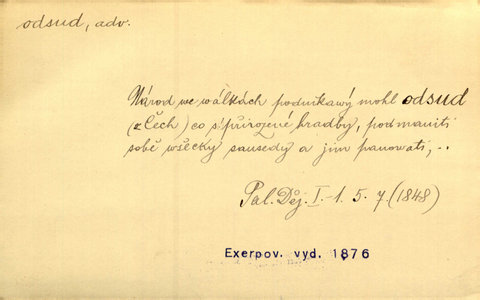 odsud, adv.
Národ we wálkách podnikawý mohl odsud
(z Čech) co s přirozené hradby, podmaniti
sobě wšecky sausedy a jim panowati, -.
Pal. Děj. I.-1. 5. 7. (1848)
Exerpov. vyd. 1876